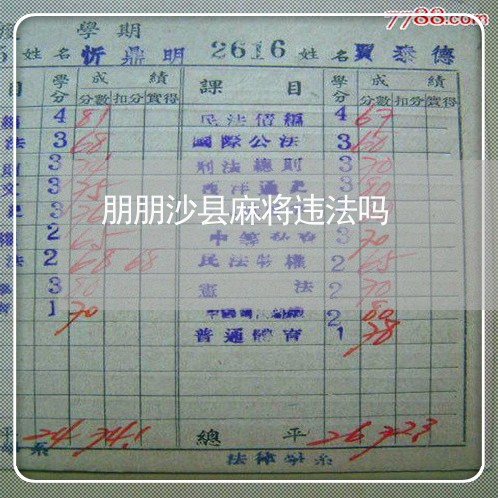 7788.com
學期
5 姓名 忻鼎明 2616 姓名 賈泰德
目 學分 成績 分數 扣分 實得 課目 學分 成績 分數 扣分 實得
4 81 民法債編 4 67
法 3 68 國際公法 3 60
3 刑法總則 3 70
3 75 西洋通史 3 80
3
朋朋沙县麻将违法吗
2 65 3 70
法 2 68 68 民法物權 2 65
3 80 憲法 2 70
1 70 2 80
普通體育 1 78
平 24 74.1 總平 26 72.3
系 法律學系